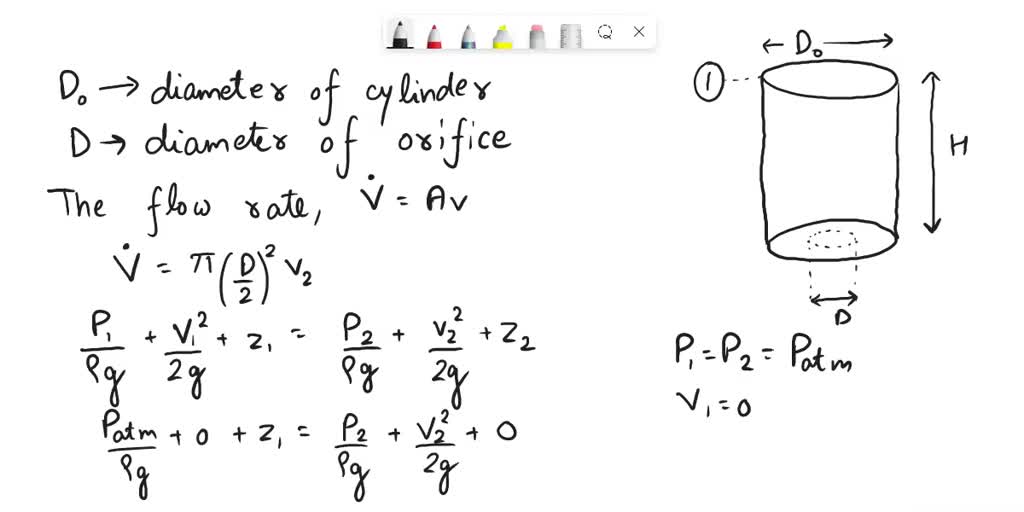 D₀ → diameter of cylinder
D → diameter of orifice
The flow rate, V̇ = Av
V̇ = π(D/2)² v₂
P₁/ρg + v₁²/2g + z₁ = P₂/ρg + v₂²/2g + z₂
Patm/ρg + 0 + z₁ = P₂/ρg + v₂²/2g + 0
← D₀ →
①
H
D
P₁ = P₂ = Patm
v₁ = 0